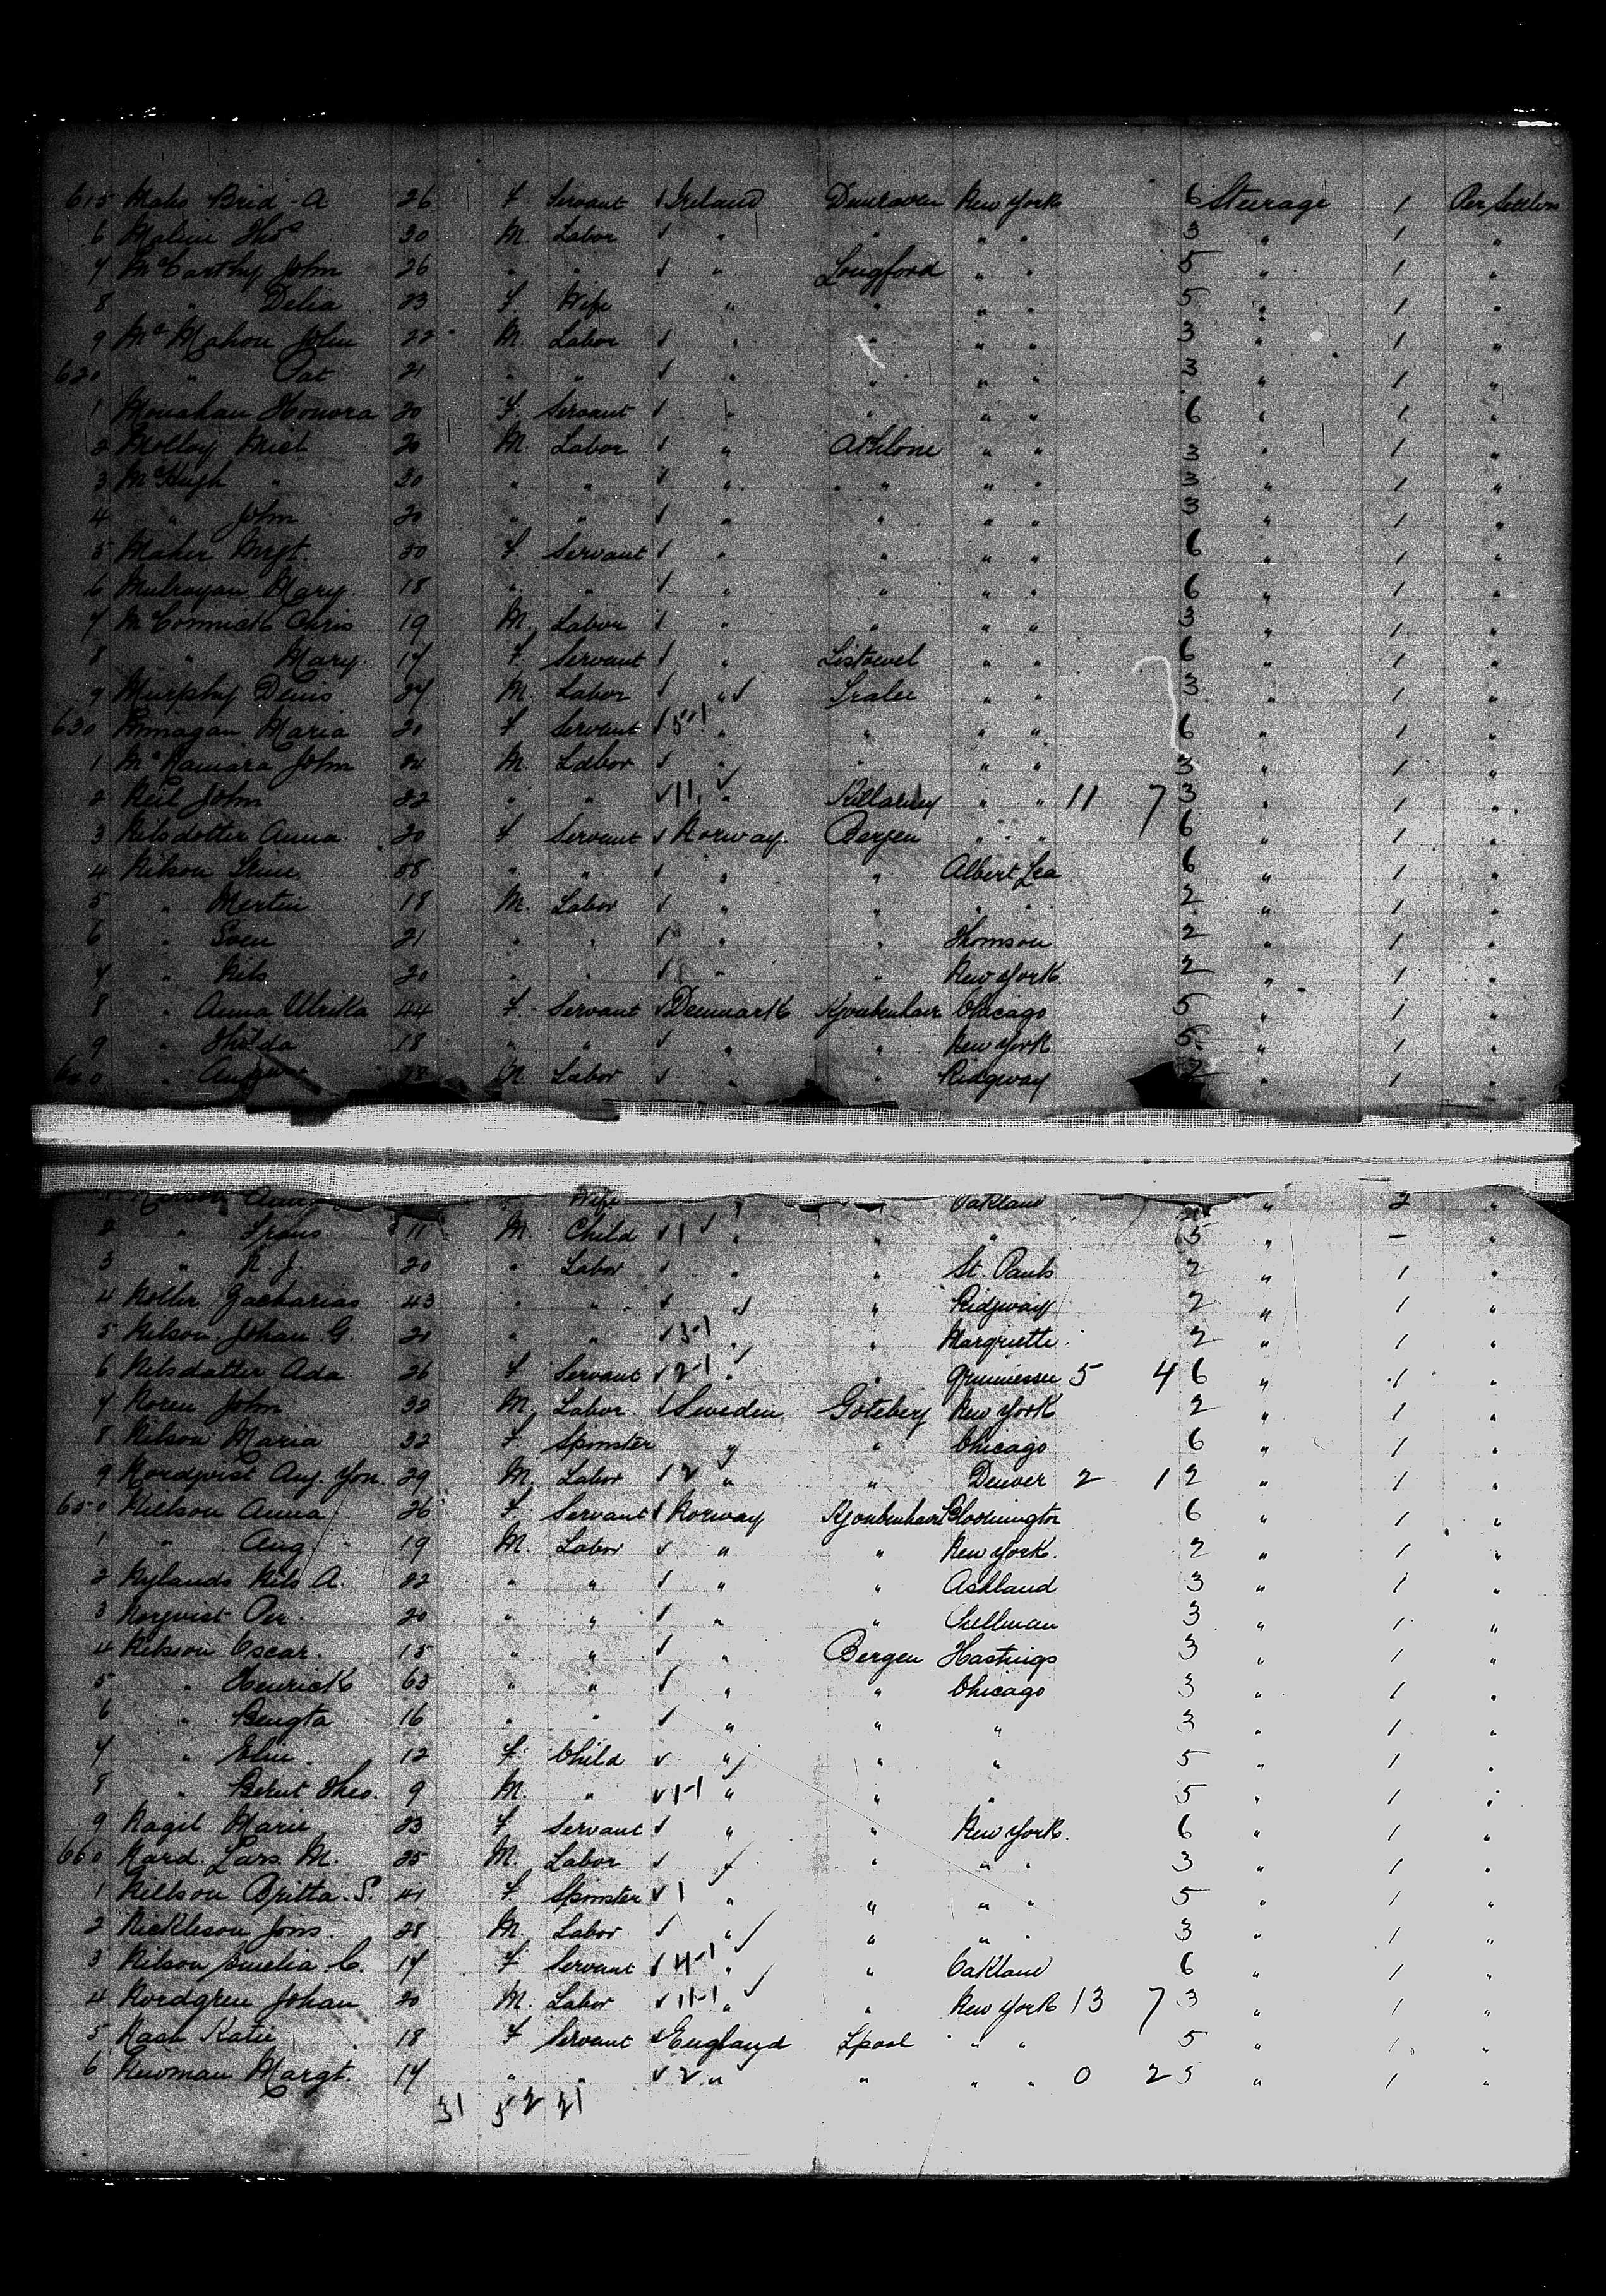 615 Brid-A 26 F Servant Ireland New York 6 Steerage 1 Per Settler
6 Thos 30 M. Labor " " " " 3 " 1 "
7 McCarthy John 26 " " " Longford " " 5 " 1 "
8 " Delia 23 F Wife " " " " 5 " 1 "
9 McMahon John 22 M. Labor " " " " 3 " 1 "
620 " Pat 21 " " " " " " 3 " 1 "
1 Monahan Honora 20 F. Servant " " " " 6 " 1 "
2 Molloy Micl 20 M. Labor " Athlone " " 3 " 1 "
3 McHugh " 30 " " " " " " 3 " 1 "
4 " John 20 " " " " " " 3 " 1 "
5 Maher Mrgt. 50 F. Servant " " " " 6 " 1 "
6 Mulroyan Mary. 18 " " " " " " 6 " 1 "
7 McCormick Chris 19 M. Labor " " " " 3 " 1 "
8 " Mary. 17 F Servant " Listowel " " 6 " 1 "
9 Murphy Denis 27 M. Labor " Tralee " " 3 " 1 "
630 Maria 20 F Servant 5-1 " " " " 6 " 1 "
1 McNamara John 24 M. Labor " " " " 3 " 1 "
2 Neil John 22 " " 11 " Killarney " " 11 7 3 " 1 "
3 Nilsdotter Anna 20 F Servant Norway. Bergen " " 6 " 1 "
4 Nilson Stine 58 " " " " Albert Lea 6 " 1 "
5 " Martin 18 M. Labor " " " " 2 " 1 "
6 " Sven 21 " " " " Thomson 2 " 1 "
7 " Nils 20 " " " " New York 2 " 1 "
8 " Anna Ulrika 44 F. Servant Denmark Kjoubenhavn Chicago 5 " 1 "
9 " Thilda 18 " " " " New York 5 " 1 "
640 " M. Labor " " Ridgway 2 " 1 "
Wife " " Oakland " 2 "
2 " 11 M. Child 1 " " " 5 " - "
3 " N. J. 20 " Labor " " St. Pauls 2 " 1 "
4 Zacharias 43 " " " " Ridgway 2 " 1 "
5 Nilson Johan G. 21 " " 3-1 " " Margriette 2 " 1 "
6 Nilsdatter Ada 26 F Servant 2-1 " " 5 4 6 " 1 "
7 Noren John 32 M. Labor. Sweden Goteberg New York 2 " 1 "
8 Nilson Maria 32 F. Spinster " " Chicago 6 " 1 "
9 Nordqvist Aug. Jon. 29 M. Labor 2 " " Denver 2 1 2 " 1 "
650 Nillson Anna 26 F. Servant Norway Kjoubenhavn Bloomington 6 " 1 "
1 " Aug 19 M. Labor " " New York. 2 " 1 "
2 Nylands Nils A. 22 " " " " Ashland 3 " 1 "
3 Norqvist Per. 20 " " " " 3 " 1 "
4 Nilsson Oscar. 15 " " " Bergen Hastings 3 " 1 "
5 " Henrick 63 " " " " Chicago 3 " 1 "
6 " Bengta 16 " " " " " 3 " 1 "
7 " Elin 12 F Child " " " 5 " 1 "
8 " Bernt Theo. 9 M. " 1-1 " " " 5 " 1 "
9 Nagil Marie 23 F Servant " " New York. 6 " 1 "
660 Nard. Lars M. 25 M. Labor " " " 3 " 1 "
1 Nillson Britta. S. 41 F Spinster 1 " " " " 5 " 1 "
2 Nickleson Jons. 28 M. Labor " " " " 3 " 1 "
3 Nilson Amelia C. 17 F Servant 4-1 " " Oakland 6 " 1 "
4 Nordgren Johan 20 M. Labor 11-1 " " New York 13 7 3 " 1 "
5 Nash Katie 18 F Servant England Lpool " " 5 " 1 "
6 Newman Margt. 17 " " 2 " " " " 0 2 5 " 1 "
31 52 21